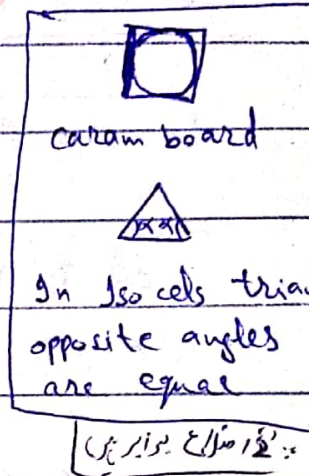 caram board
In Isocels trian
opposite angles
are equal
اضلاع برابر ہیں